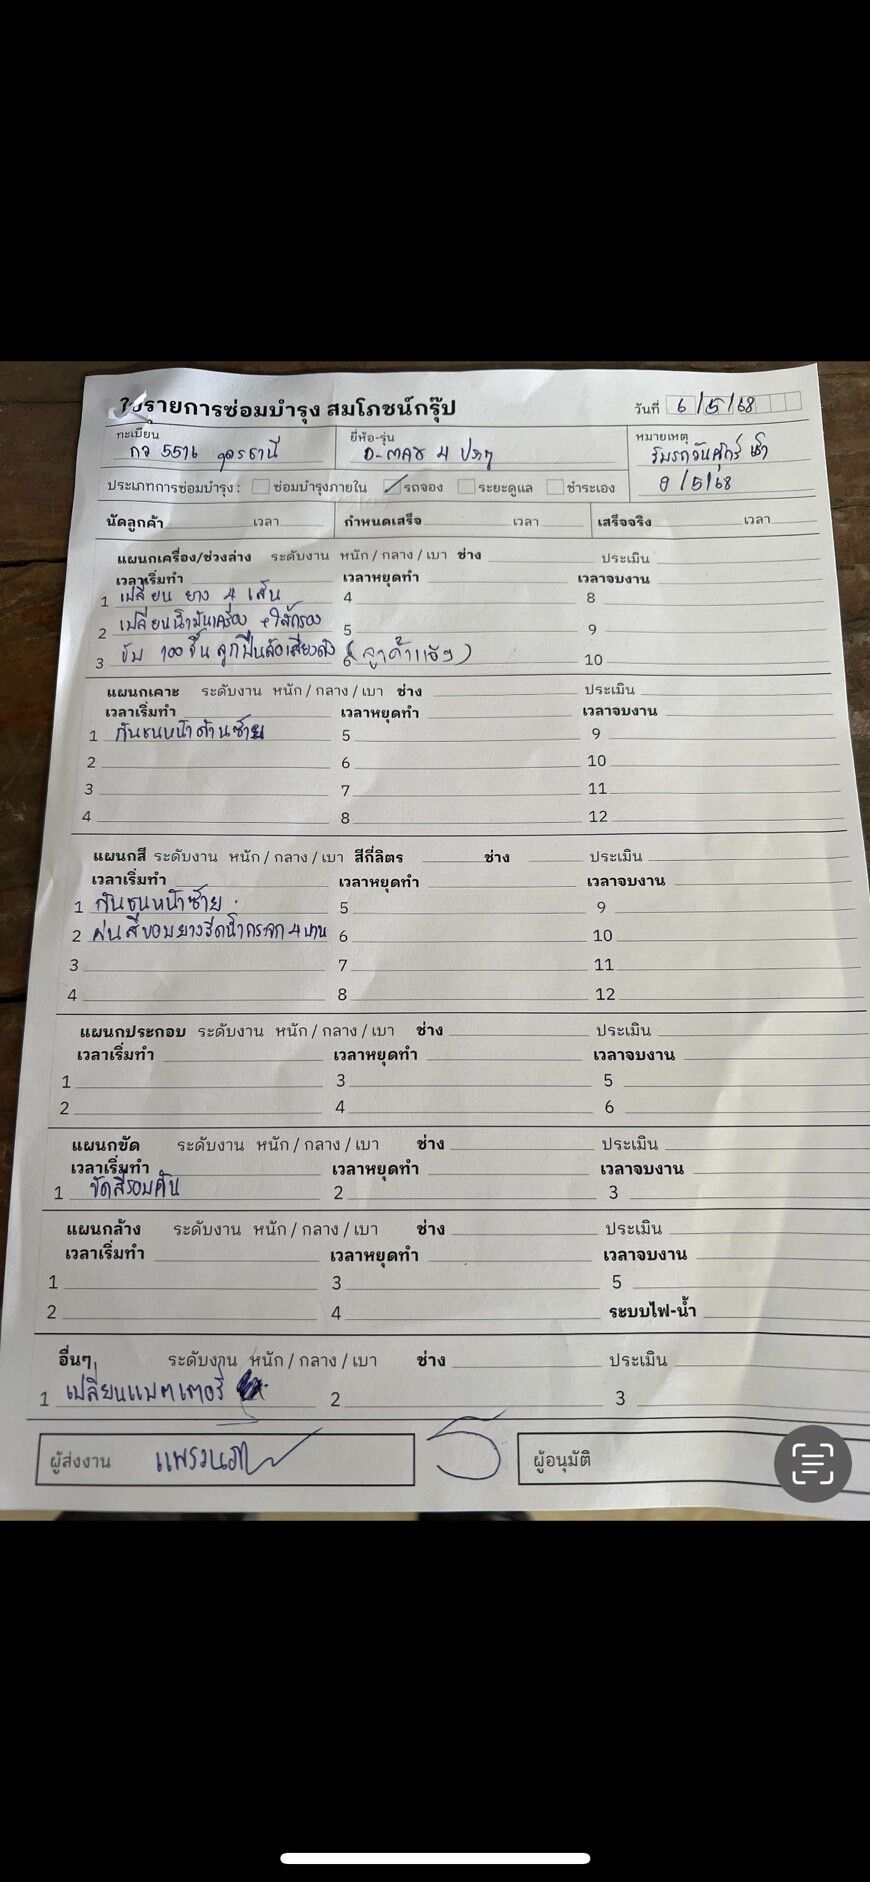 ใบรายการซ่อมบำรุง สมโภชน์กรุ๊ป วันที่ 6/5/68
ทะเบียน ยี่ห้อ-รุ่น หมายเหตุ
กจ 5516 อุดรธานี D-MAX 4 ประตู รับรถวันศุกร์ เช้า
ประเภทการซ่อมบำรุง : ซ่อมบำรุงภายใน รถจอง ระยะดูแล ชำระเอง 9/5/68
นัดลูกค้า เวลา กำหนดเสร็จ เวลา เสร็จจริง เวลา
แผนกเครื่อง/ช่วงล่าง ระดับงาน หนัก / กลาง / เบา ช่าง ประเมิน
เวลาเริ่มทำ เวลาหยุดทำ เวลาจบงาน
1 เปลี่ยน ยาง 4 เส้น 4 8
2 เปลี่ยนน้ำมันเครื่อง +ไส้กรอง 5 9
3 ขับ 100 ขึ้น ลูกปืนล้อเสียงดัง 6 (ลูกค้าแจ้ง) 10
แผนกเคาะ ระดับงาน หนัก / กลาง / เบา ช่าง ประเมิน
เวลาเริ่มทำ เวลาหยุดทำ เวลาจบงาน
1 กันชนหน้าด้านซ้าย 5 9
2 6 10
3 7 11
4 8 12
แผนกสี ระดับงาน หนัก / กลาง / เบา สีกี่ลิตร ช่าง ประเมิน
เวลาเริ่มทำ เวลาหยุดทำ เวลาจบงาน
1 กันชนหน้าซ้าย 5 9
2 พ่นสีขอบยางรีดน้ำกระจก 4 บาน 6 10
3 7 11
4 8 12
แผนกประกอบ ระดับงาน หนัก / กลาง / เบา ช่าง ประเมิน
เวลาเริ่มทำ เวลาหยุดทำ เวลาจบงาน
1 3 5
2 4 6
แผนกขัด ระดับงาน หนัก / กลาง / เบา ช่าง ประเมิน
เวลาเริ่มทำ เวลาหยุดทำ เวลาจบงาน
1 ขัดสีรอบคัน 2 3
แผนกล้าง ระดับงาน หนัก / กลาง / เบา ช่าง ประเมิน
เวลาเริ่มทำ เวลาหยุดทำ เวลาจบงาน
1 3 5
2 4 ระบบไฟ-น้ำ
อื่นๆ ระดับงาน หนัก / กลาง / เบา ช่าง ประเมิน
1 เปลี่ยนแบตเตอรี่ 2 3
ผู้ส่งงาน 5 ผู้อนุมัติ